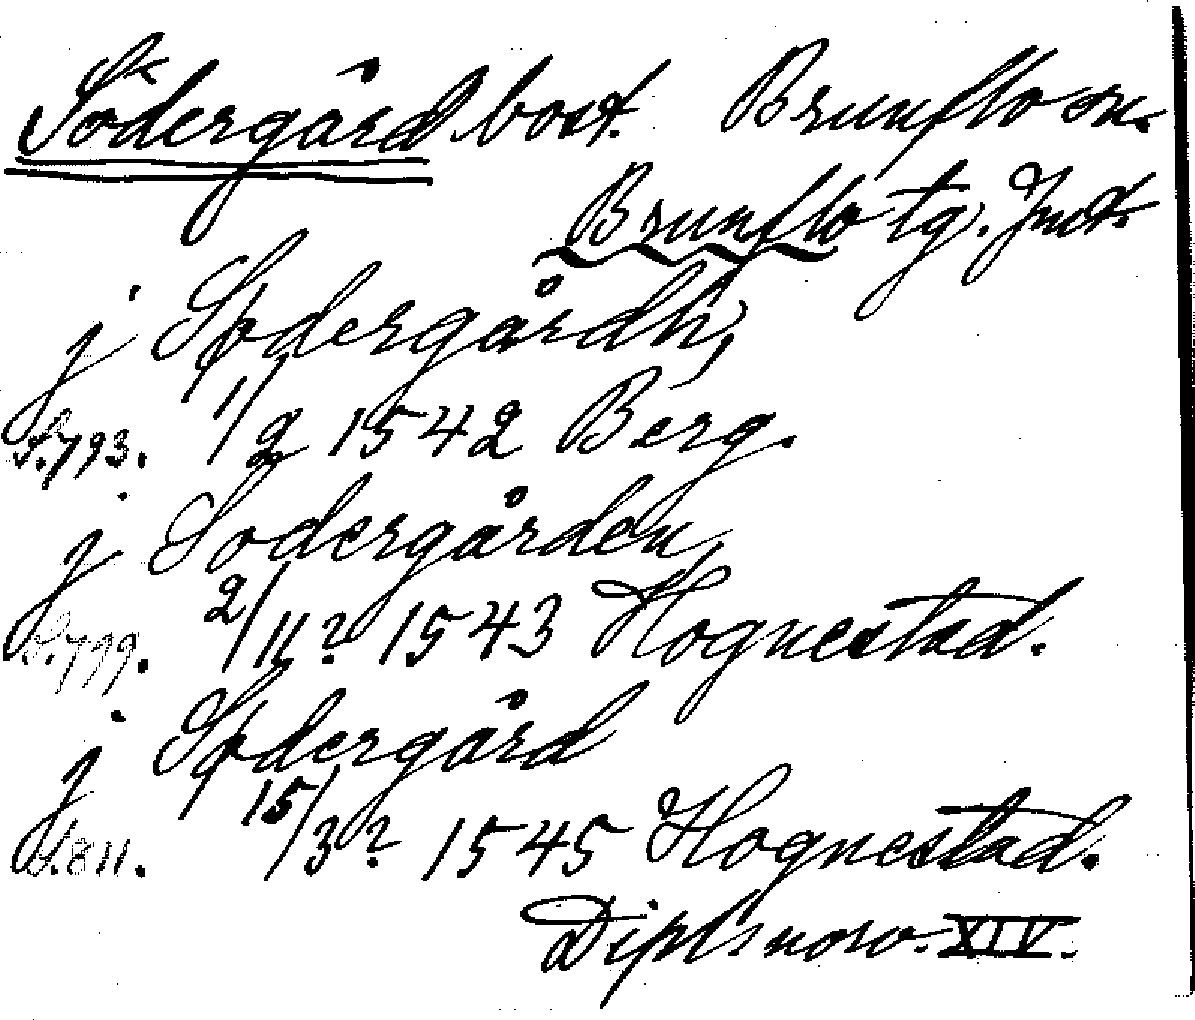 Södergård bost. Brunflo sn.
Brunflo tg. Jmt.
j Sødergårdh,
S.793. 1/2 1542 Berg.
j Sodergården,
S.799. 2/11? 1543 Hognestad.
j Sødergård
S.811. 15/3? 1545 Hognestad.
Dipl. norv. XIV.